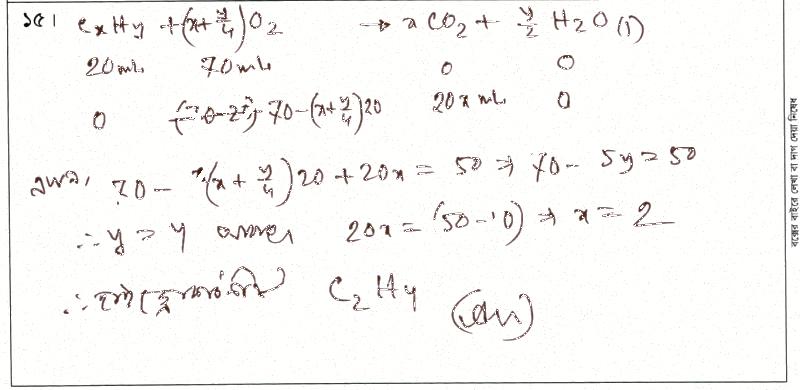 ১৫। CxHy + (x+y/4)O2 → xCO2 + y/2 H2O(l)
20mL 70mL 0 0
0 70-(x+y/4)20 20x mL 0
এখন, 70 - (x + y/4)20 + 20x = 50 ⇒ 70 - 5y = 50
∴ y = 4 আবার, 20x = (50-10) ⇒ x = 2
∴ হাইড্রোকার্বনটি C2H4 (Ans)
বক্সের বাইরে লেখা বা দাগ দেয়া নিষেধ